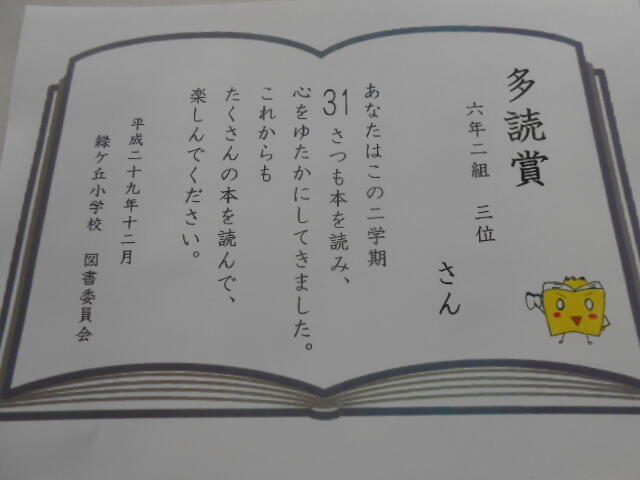 多読賞
六年二組 三位
さん
あなたはこの二学期
31さつも本を読み、
心をゆたかにしてきました。
これからも
たくさんの本を読んで、
楽しんでください。
平成二十九年十二月
緑ケ丘小学校 図書委員会